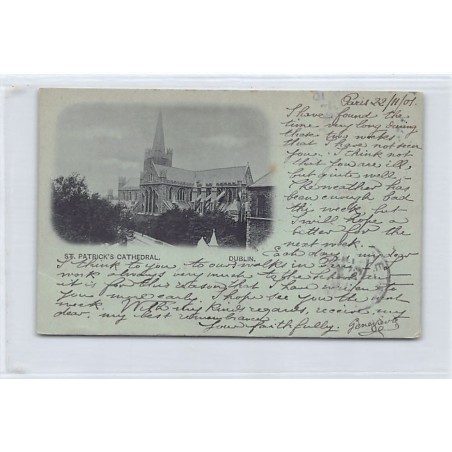 Paris 22/11/01
I have found the
time very long during
these two weeks
that I have not seen
you. I think not
that you are ill,
but quite well.
The weather has
been enough bad
this week but
I will hope a
better for the
next week.
ST. PATRICK'S CATHEDRAL. DUBLIN.
Each day, my dear
I think to you, to our walk in
work always very much to the
it is for this reason that I have
you more early. I hope see you the next
week. With my kinds regards, receive, my
dear, my best remembrance
Your faithfully. Geneviève